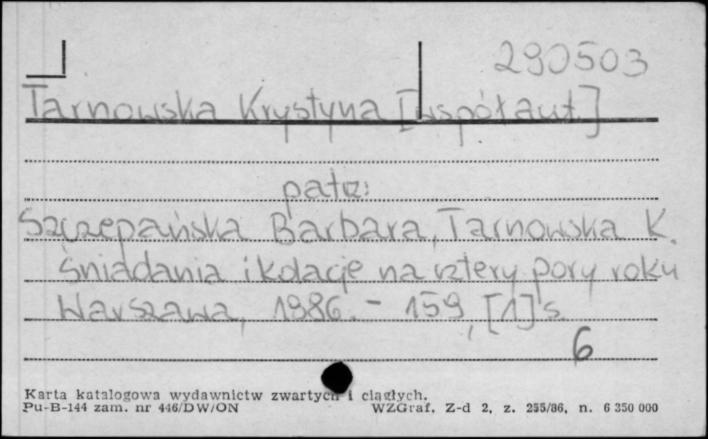 290503
Tarnowska Krystyna [współaut.]
patrz:
Szczepańska Barbara, Tarnowska K.
Śniadania i kolacje na cztery pory roku
Warszawa, 1986. - 159, [1] s.
6
Karta katalogowa wydawnictw zwartych i ciągłych.
Pu-B-144 zam. nr 446/DW/ON WZGraf. Z-d 2, z. 255/86, n. 6 350 000